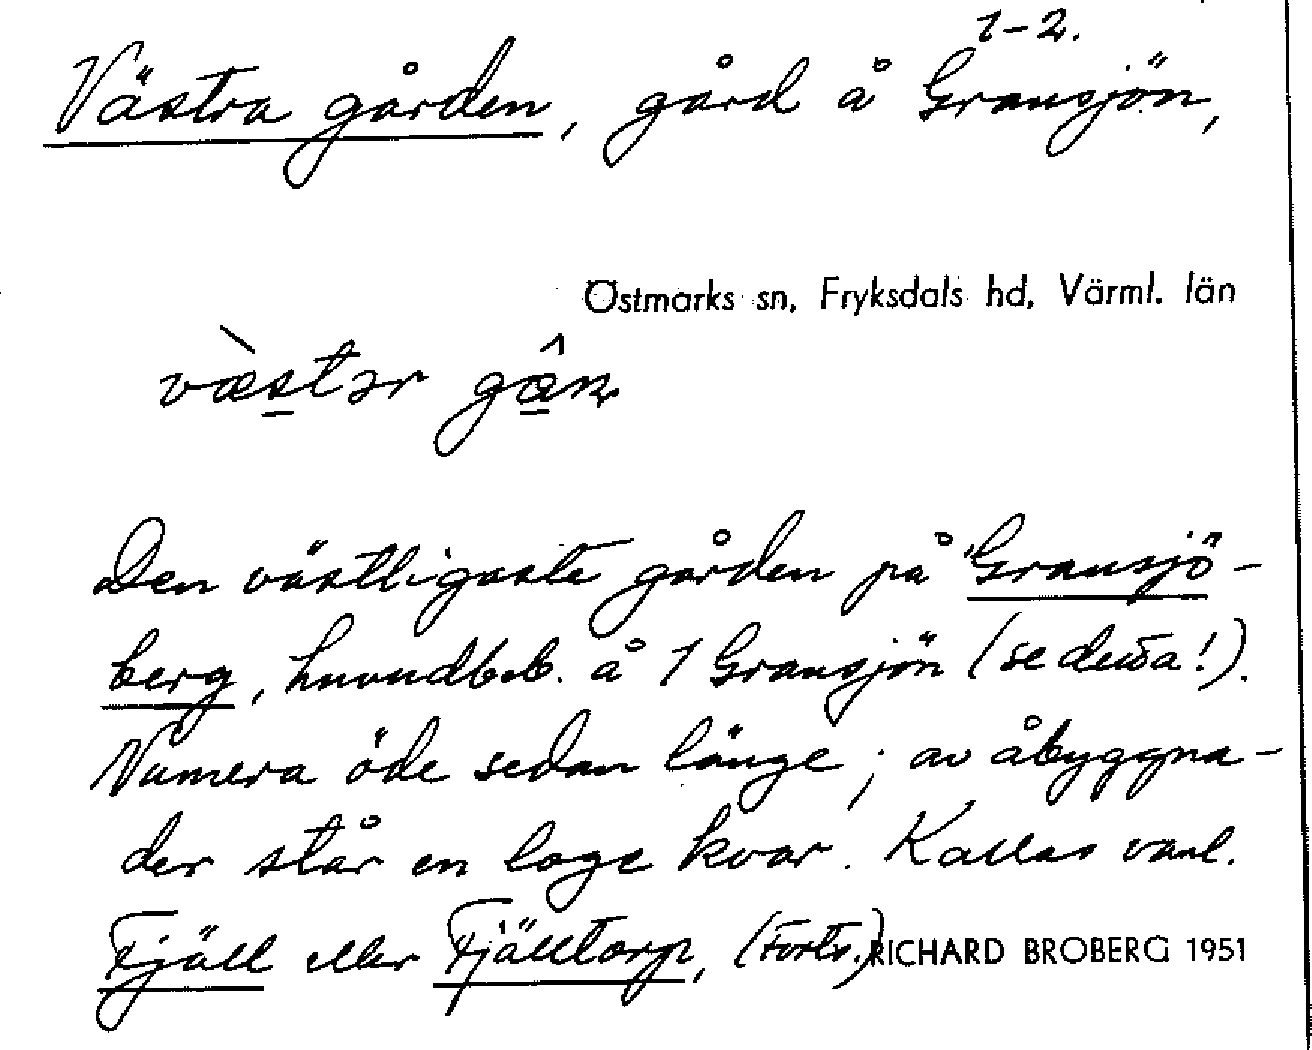 1-2.
Västra gården, gård å Gransjön,
Östmarks sn, Fryksdals hd, Värml. län
væ̀stər gæ̂ɳ
Den västligaste gården på Gransjö-
berg, huvudbeb. å 1 Gransjön (se dessa!).
Numera öde sedan länge; av åbyggna-
der står en loge kvar. Kallas vanl.
Fjäll eller Fjälltorp, (Forts.)
RICHARD BROBERG 1951